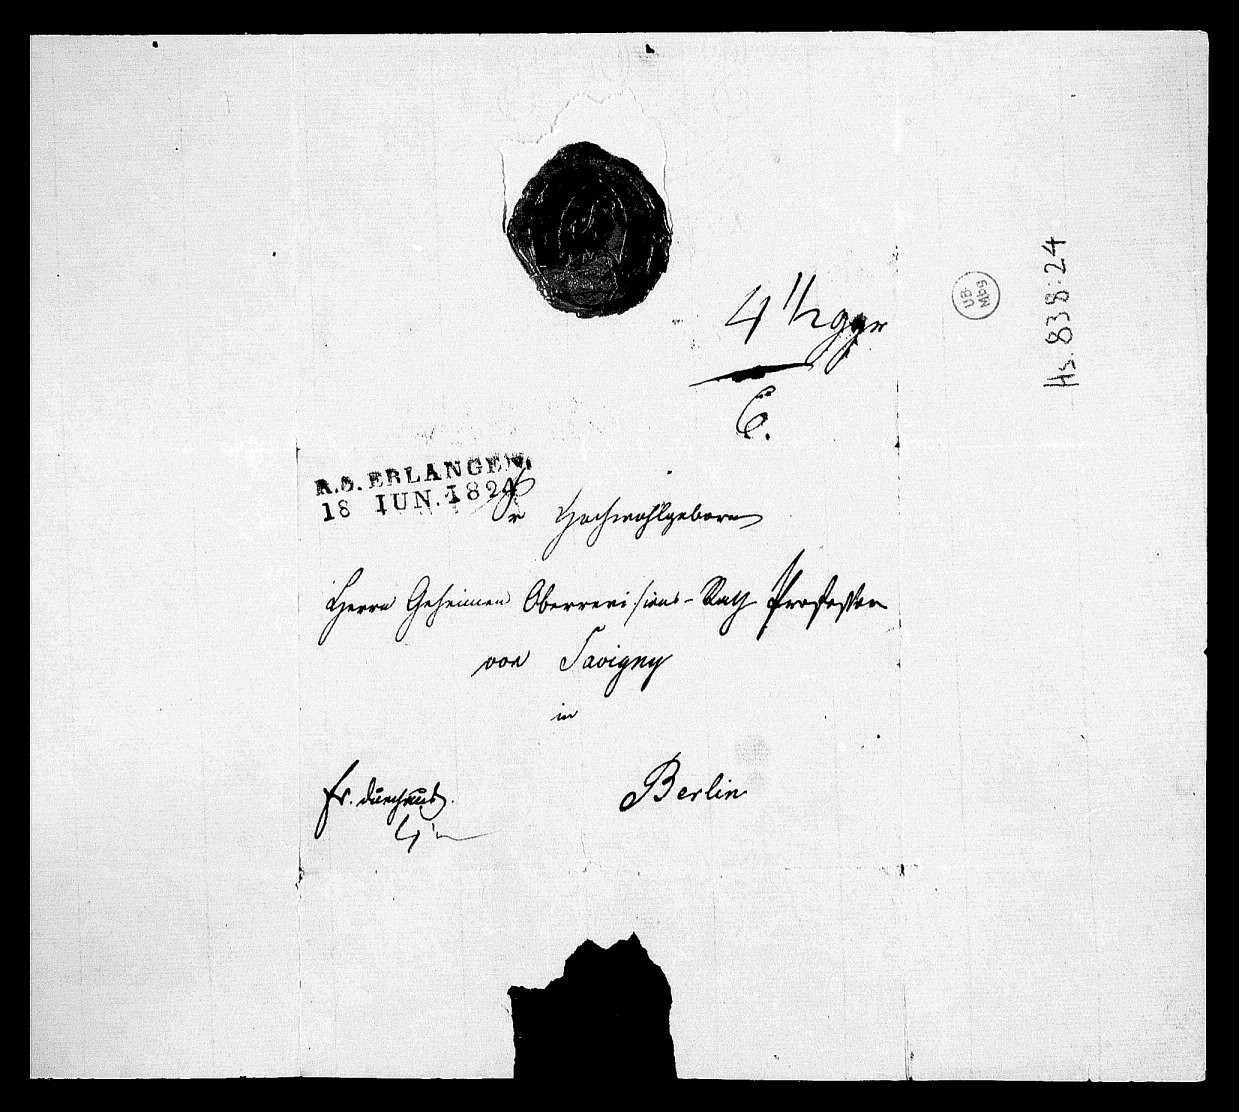 4 1/2 ggr
6.
R.S. ERLANGEN.
18 IUN. 1824
Sr Hochwohlgeboren
Herrn Geheimen Oberrevisions-Rath Professor
von Savigny
in
Berlin
fr. durchaus.
UB-
Mbg
Hs. 838:24